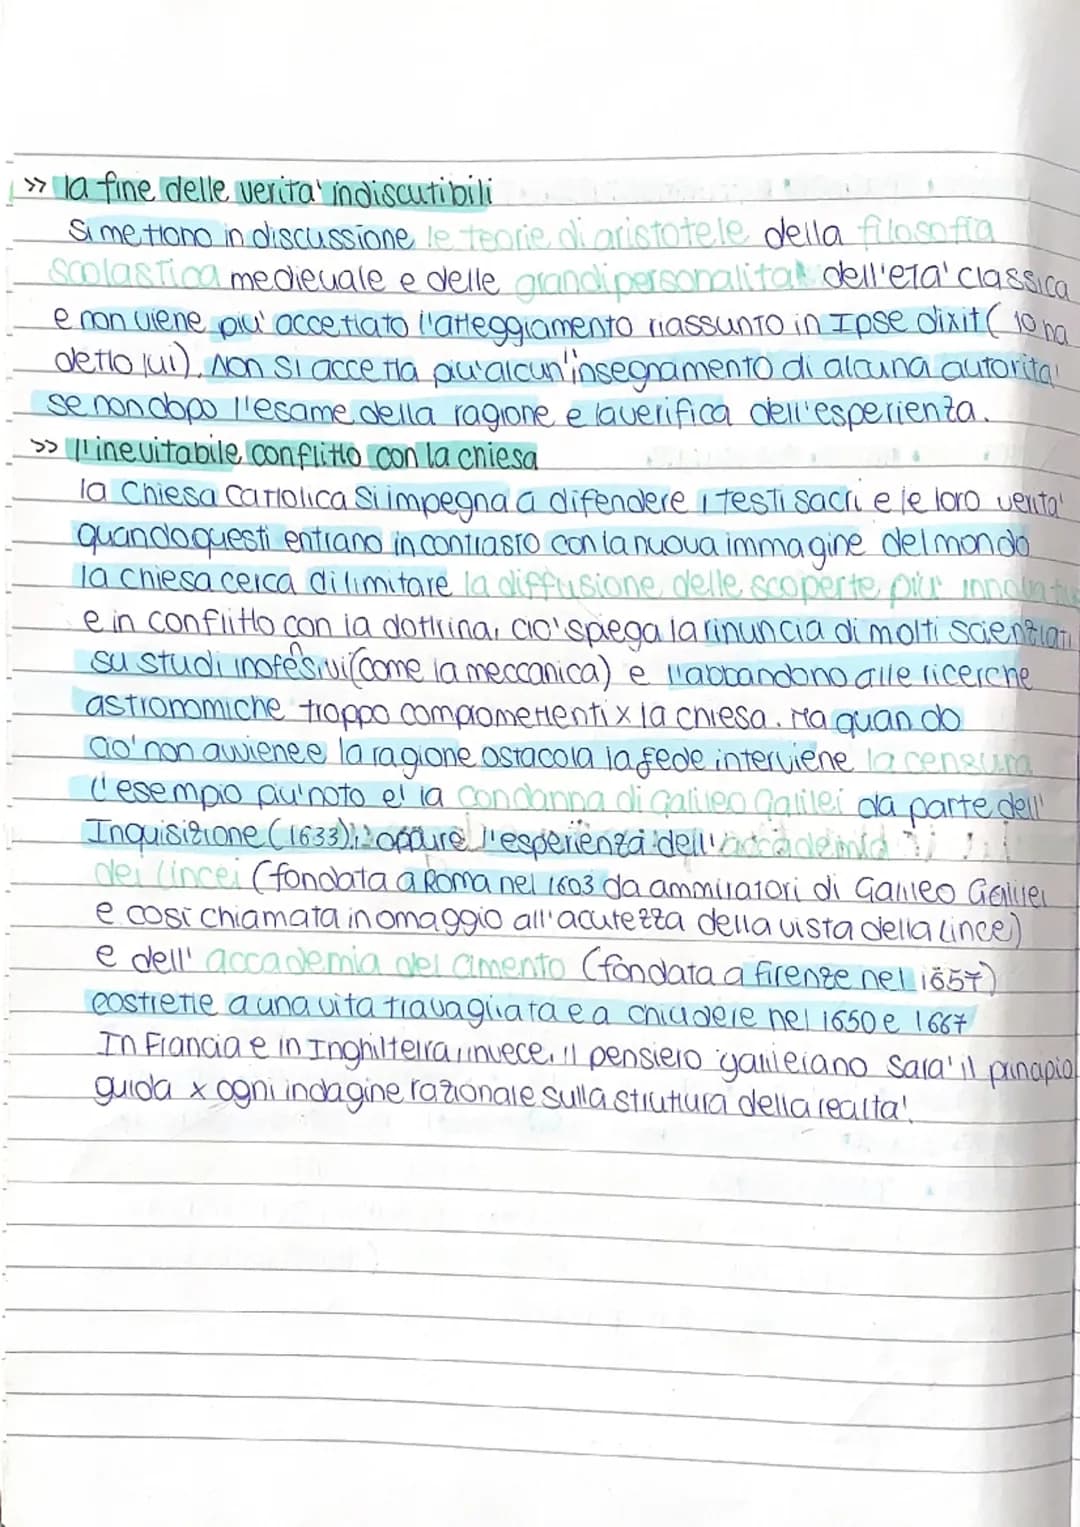 >> la fine delle verita' indiscutibili
Si mettono in discussione le teorie di aristotele della filosofia
scolastica medievale e delle grandi personalita' dell'eta' classica
e non viene piu' accettato l'atteggiamento riassunto in Ipse dixit ( lo ha
detto lui). Non si accetta piu' alcun insegnamento di alcuna autorita'
se non dopo l'esame della ragione e la verifica dell'esperienza.
>> l'inevitabile conflitto con la chiesa
la Chiesa Cattolica si impegna a difendere i testi sacri e le loro verita'
quando questi entrano in contrasto con la nuova immagine del mondo
la chiesa cerca di limitare la diffusione delle scoperte piu'
e in conflitto con la dottrina, cio' spiega la rinuncia di molti scienziati
su studi inofesivi (come la meccanica) e l'abbandono alle ricerche
astronomiche troppo compromettenti x la chiesa. Ma quando
cio' non avviene e la ragione ostacola la fede interviene la censura
l'esempio piu' noto e' la condanna di Galileo Galilei da parte dell'
Inquisizione (1633), oppure l'esperienza dell'accademia
dei Lincei (fondata a Roma nel 1603 da ammiratori di Galileo Galilei
e cosi chiamata in omaggio all'acutezza della vista della Lince)
e dell' accademia del cimento (fondata a firenze nel 1657)
costrette a una vita travagliata e a chiudere nel 1650 e 1667
In Francia e in Inghilterra, invece, il pensiero galileiano sara' il principio
guida x ogni indagine razionale sulla struttura della realta'.